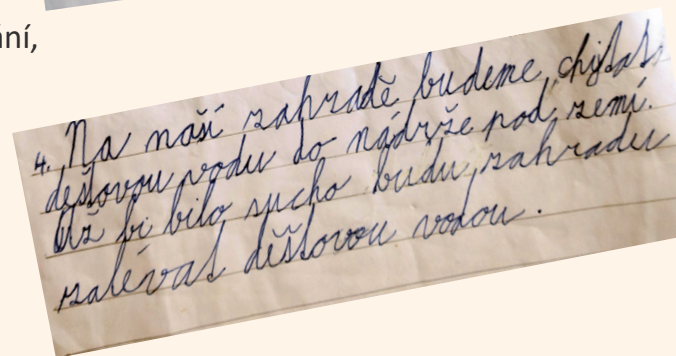 ání,
4. Na naší zahradě budeme chytat
dešťovou vodu do nádrže pod zemí.
Už bi bilo sucho budu zahradu
zalévat děšťovou vodou.